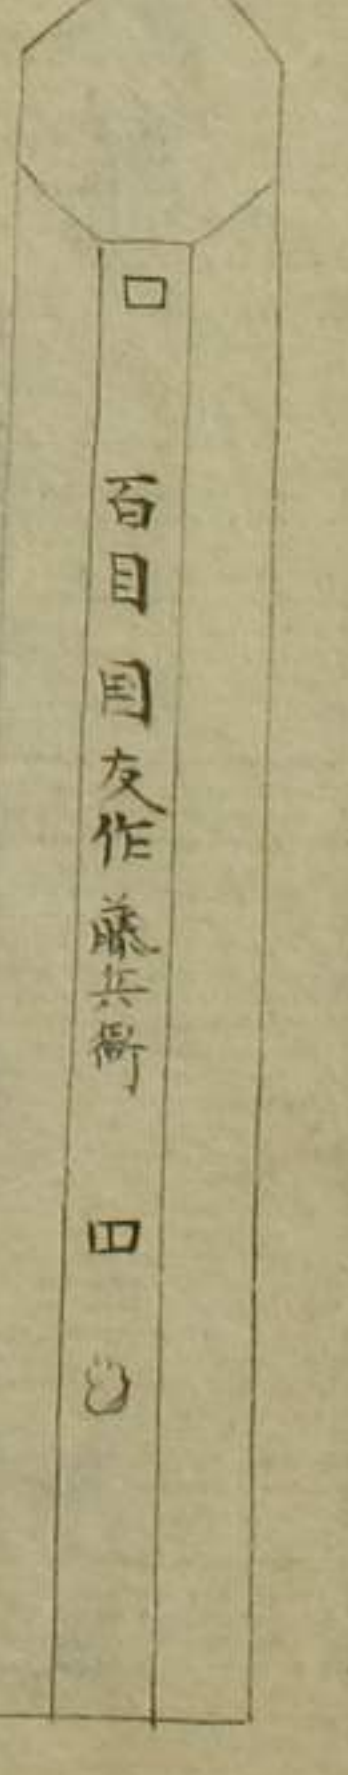 百目国友作藤兵衛
四